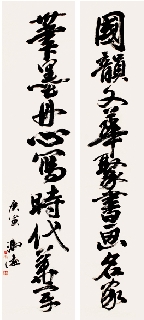 國韻文華聚書画名家
筆墨丹心寫時代華章
庚寅